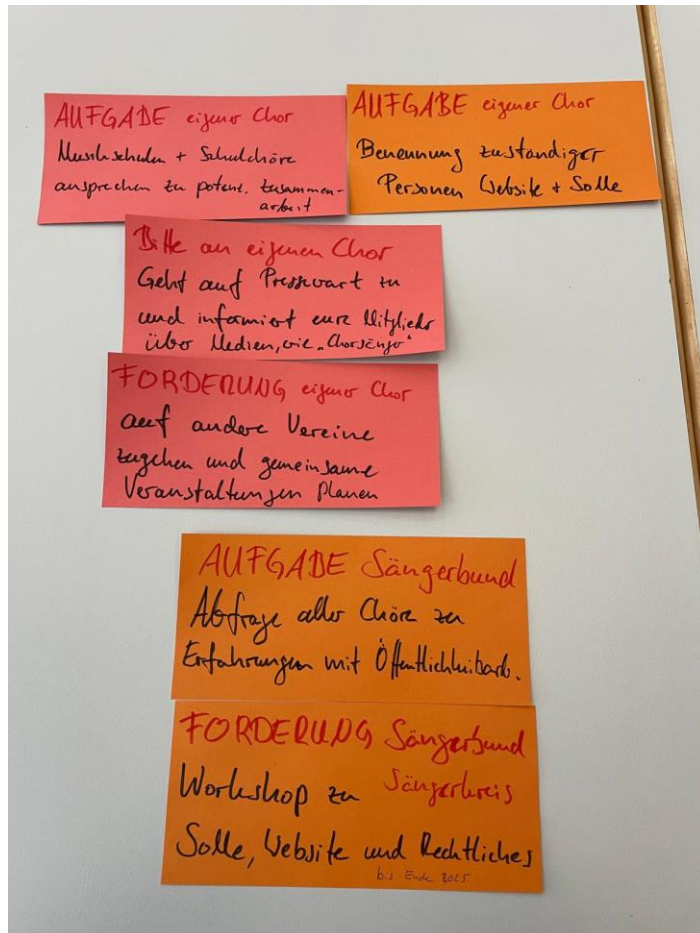 AUFGABE eigener Chor
Musikschulen + Schulchöre
ansprechen zu potenz. Zusammen-
arbeit
AUFGABE eigener Chor
Benennung zuständiger
Personen Website + SoMe
Bitte an eigenen Chor
Geht auf Pressewart zu
und informiert eure Mitglieder
über Medien, wie „Chorsänger"
FORDERUNG eigener Chor
auf andere Vereine
zugehen und gemeinsame
Veranstaltungen planen
AUFGABE Sängerbund
Abfrage aller Chöre zu
Erfahrungen mit Öffentlichkeitsarb.
FORDERUNG Sängerbund
Sängerkreis
Workshop zu
SoMe, Website und Rechtliches
bis Ende 2025